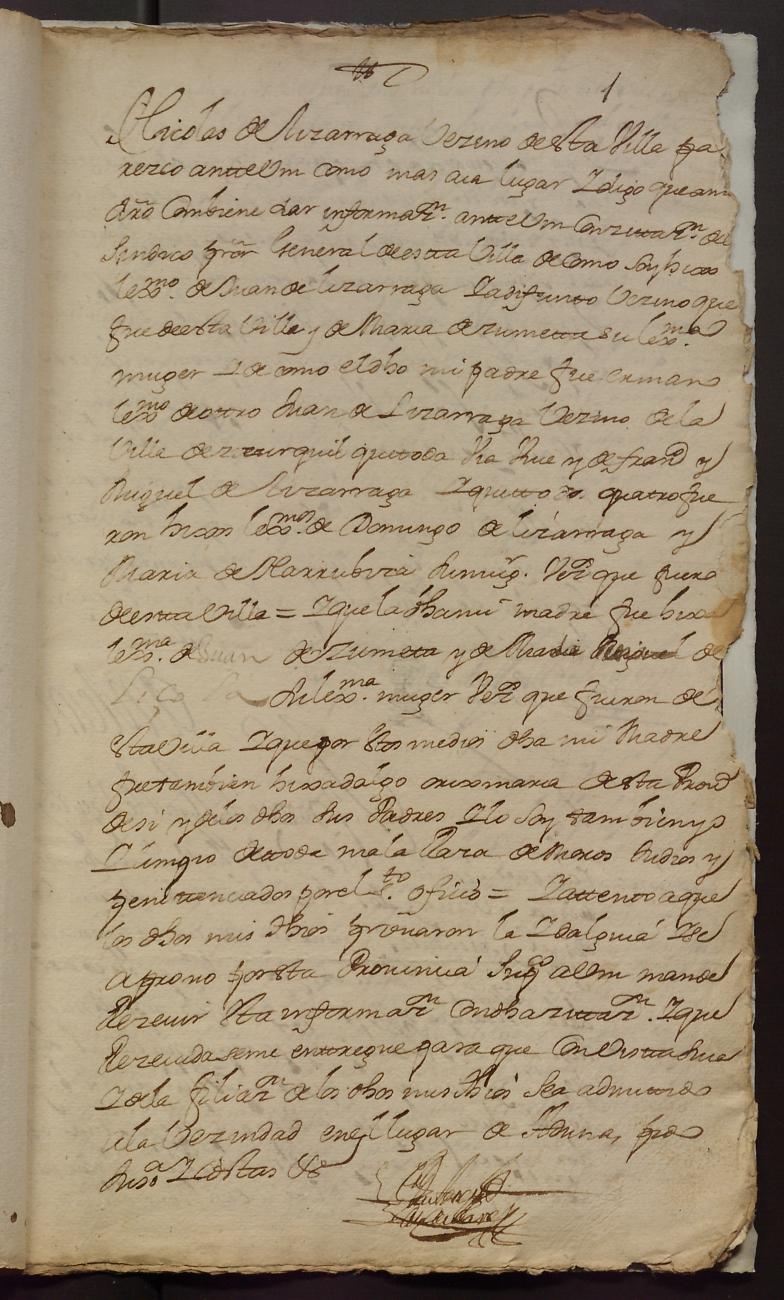 1
Nicolas de Lizarraga Vezino desta Villa pa
rezco ante Vm como mas aia lugar Y digo que a mi
dro Combiene dar informazn. ante Vm Con zitazn. del
Sindico pror General de esta Villa de como Soy hixo
lexmo. de Juan de lizarraga Ya difunto Vezino que
fue desta Villa y de Maria de Zumeta su lexma
muger Y de como el dho mi padre fue ermano
lexmo de otro Juan de Lizarraga Vezino de la
Villa de zizurquil que toda Via Viue y de franco y
Miguel de Lizarraga Y que todos quatro fue
ron hixos lexmos. de Domingo de lizarraga y
Maria de Marrubiza su mugr. Vezos que fuero
de esta Villa = Y que la dha mi madre fue hixa
lexma. de Juan de Zumeta y de Maria de
su lexma. muger Vezos que fueron de
sta Villa Y que por estos medios dha mi Madre
fue tambien hixadalgo orixinaria desta Prouia
de si y de los dhos sus Padres Y lo Soy tambien yo
Limpio de toda mala Raza de Moros Judios y
penitenciados por el sto. ofiçio = Y attento a que
los dhos mis thios prouaron la Ydalguia Y se
aprouo por esta Prouinçia Suppco a Vm mande
Rezeuir esta informazn Con dha zitazn. Y que
Rezeuida se me entregue para que Con Vista suia
Y de la filiazn de los dhos mis thios Sea admitido
a la Vezindad en el lugar de Aduna, pido
Justa Y Costas &a